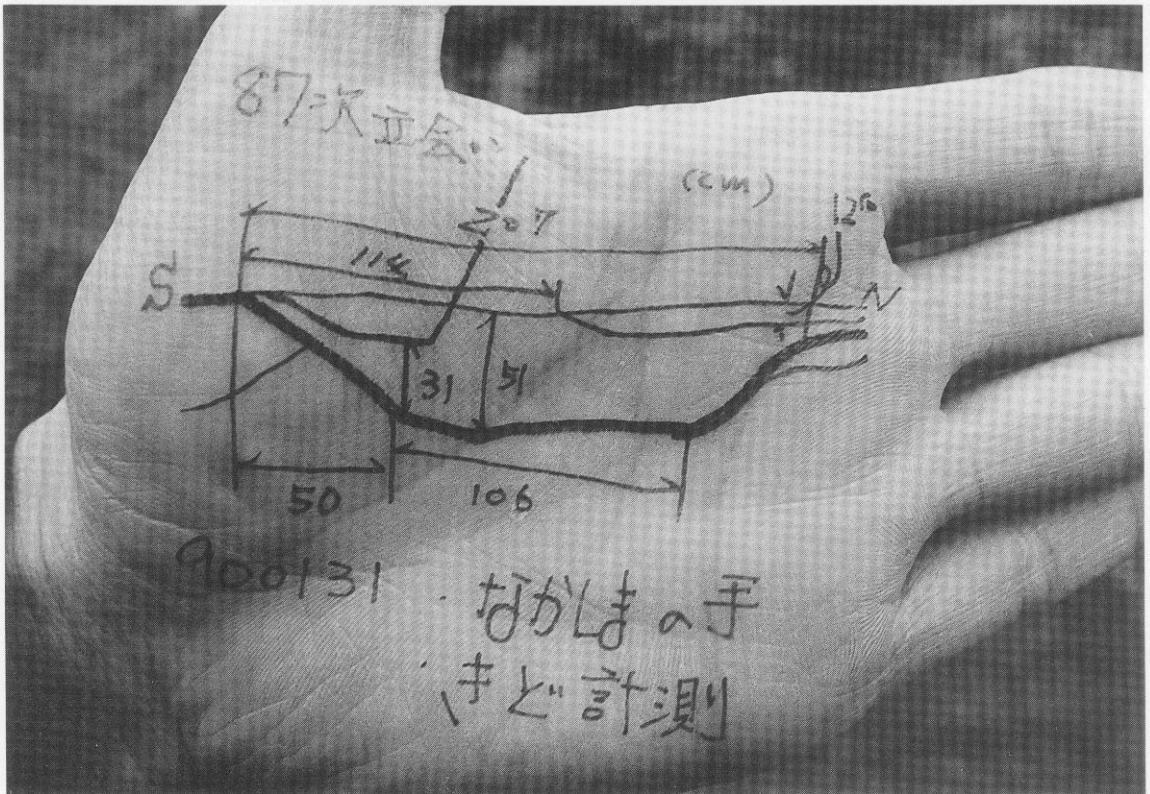 87次立会
(cm)
207
114
S
N
31
51
50
106
900131
なかじまの手
きど計測